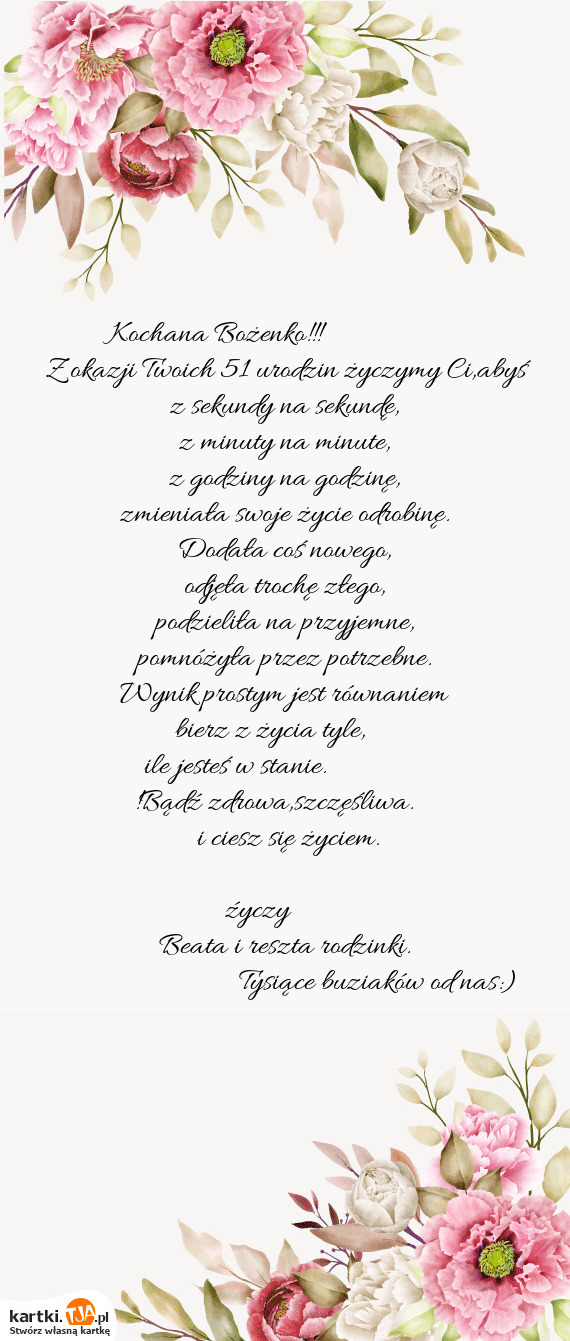 Kochana Bożenko!!!
Z okazji Twoich 51 urodzin życzymy Ci,abyś
z sekundy na sekundę,
z minuty na minute,
z godziny na godzinę,
zmieniała swoje życie odrobinę.
Dodała coś nowego,
odjęła trochę złego,
podzieliła na przyjemne,
pomnóżyła przez potrzebne.
Wynik prostym jest równaniem
bierz z życia tyle,
ile jesteś w stanie.
!Bądź zdrowa,szczęśliwa.
i ciesz się życiem.
źyczy
Beata i reszta rodzinki.
Tysiące buziaków od nas:)
kartki.TJA.pl
Stwórz własną kartkę